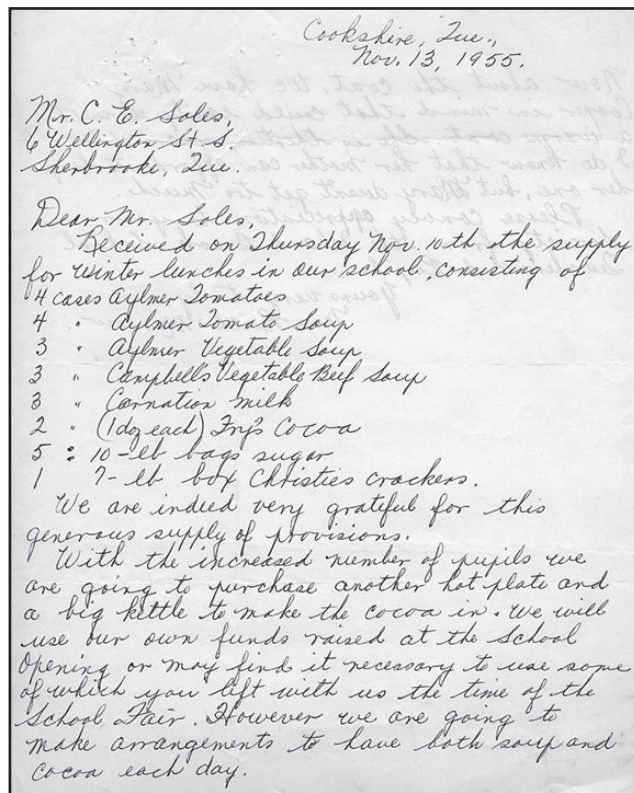 Cookshire, Que.,
Nov. 13, 1955.
Mr. C. E. Soles,
6 Wellington St S.
Sherbrooke, Que.
Dear Mr. Soles,
Received on Thursday Nov. 10th the supply
for winter lunches in our school, consisting of
4 cases Aylmer Tomatoes
4 " Aylmer Tomato Soup
3 " Aylmer Vegetable Soup
3 " Campbell's Vegetable Beef Soup
3 " Carnation Milk
2 " (1 doz each) Fry's Cocoa
5 : 10-lb bags sugar
1 7-lb box Christies crackers.
We are indeed very grateful for this
generous supply of provisions.
With the increased number of pupils we
are going to purchase another hot plate and
a big kettle to make the cocoa in. We will
use our own funds raised at the School
Opening or may find it necessary to use some
of which you left with us the time of the
School Fair. However we are going to
make arrangements to have both soup and
cocoa each day.